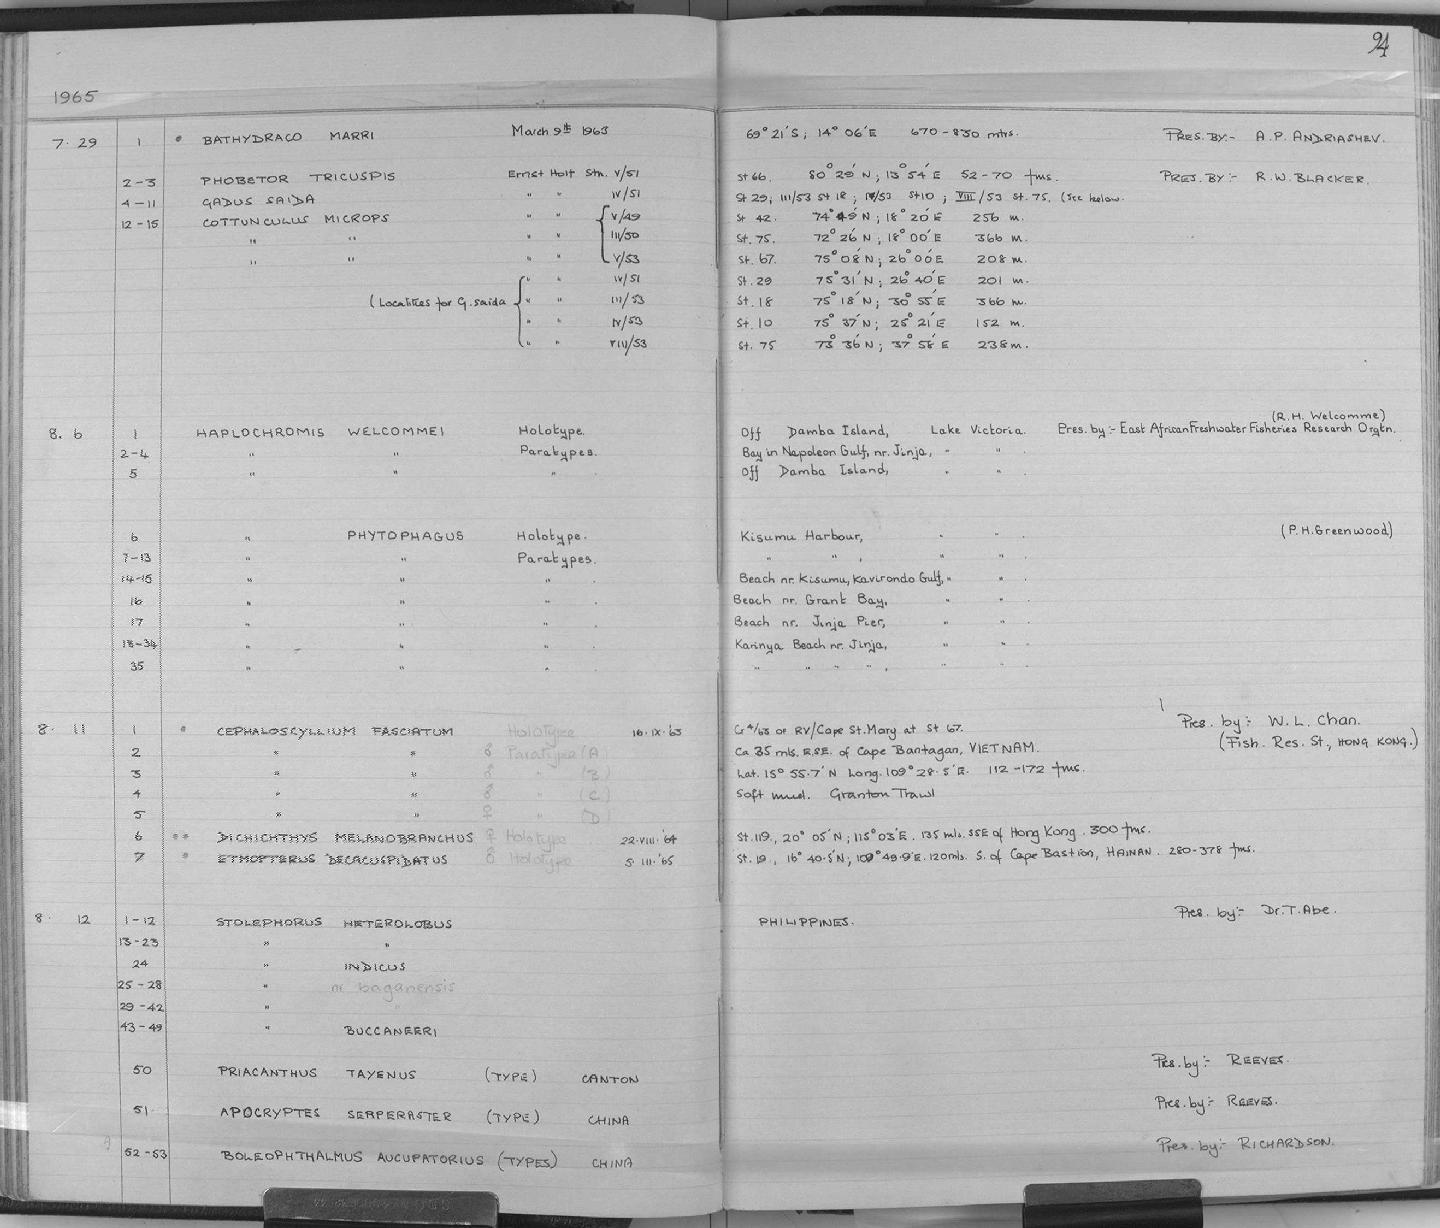 94
1965
7. 29 1 * BATHYDRACO MARRI March 9th 1963 69° 21'S; 14° 06'E 670-830 mtrs. PRES. BY:- A.P. ANDRIASHEV.
2-3 PHOBETOR TRICUSPIS Ernst Holt Stn. V/51 St 66. 80° 29' N; 13° 54' E 52-70 fms. PRES. BY:- R.W. BLACKER.
4-11 GADUS SAIDA " " IV/51 St 29; III/53 St 18; IV/53 St 10; VIII/53 St. 75. (See below.
12-15 COTTUNCULUS MICROPS " " V/49 St 42. 74° 49' N; 18° 20' E 256 m.
" " " " III/50 St. 75. 72° 26' N; 18° 00' E 366 m.
" " " " V/53 St. 67. 75° 08' N; 26° 00' E 208 m.
" " IV/51 St. 29 75° 31' N; 26° 40' E 201 m.
(Localities for G. saida " " III/53 St. 18 75° 18' N; 30° 55' E 366 m.
" " IV/53 St. 10 75° 37' N; 25° 21' E 152 m.
" " VIII/53 St. 75 73° 36' N; 37° 58' E 238 m.
(R.H. Welcomme)
8. 6 1 HAPLOCHROMIS WELCOMMEI Holotype. Off Damba Island, Lake Victoria. Pres. by:- East African Freshwater Fisheries Research Orgtn.
2-4 " " Paratypes. Bay in Napoleon Gulf, nr. Jinja, " " .
5 " " " . Off Damba Island, " " .
6 " PHYTOPHAGUS Holotype. Kisumu Harbour, " " . (P.H. Greenwood)
7-13 " " Paratypes. " " , " " .
14-15 " " " . Beach nr. Kisumu, Kavirondo Gulf, " " .
16 " " " . Beach nr. Grant Bay, " " .
17 " " " . Beach nr. Jinja Pier, " " .
18-34 " " " . Karinya Beach nr. Jinja, " " .
35 " " " . " " " " , " " .
8. 11 1 * CEPHALOSCYLLIUM FASCIATUM Holotype 16.IX.'63 Cr 4/63 of RV/Cape St. Mary at St 67. Pres. by:- W. L. Chan.
2 " " ♂ Paratype (A) Ca 35 mls. E.SE. of Cape Bantagan, VIETNAM. (Fish. Res. St., HONG KONG.)
3 " " ♂ " (B) Lat. 15° 55.7' N Long. 109° 28.5' E. 112-172 fms.
4 " " ♂ " (C) Soft mud. Granton Trawl
5 " " ♀ " (D)
6 ** DICHICHTHYS MELANOBRANCHUS ♀ Holotype 22.VIII.'64 St. 119., 20° 05' N; 115° 03' E. 135 mls. SSE of Hong Kong. 300 fms.
7 * ETMOPTERUS DECACUSPIDATUS ♂ Holotype 5.III.'65 St. 19., 16° 40.5' N; 109° 49.9' E. 120 mls. S. of Cape Bastion, HAINAN. 280-378 fms.
8. 12 1-12 STOLEPHORUS HETEROLOBUS PHILIPPINES. Pres. by:- Dr. T. Abe.
13-23 " "
24 " INDICUS
25-28 " nr baganensis
29-42 " "
43-49 " BUCCANEERI
50 PRIACANTHUS TAYENUS (TYPE) CANTON Pres. by:- REEVES.
51. APOCRYPTES SERPERASTER (TYPE) CHINA Pres. by:- REEVES.
52-53 BOLEOPHTHALMUS AUCUPATORIUS (TYPES) CHINA Pres. by:- RICHARDSON.